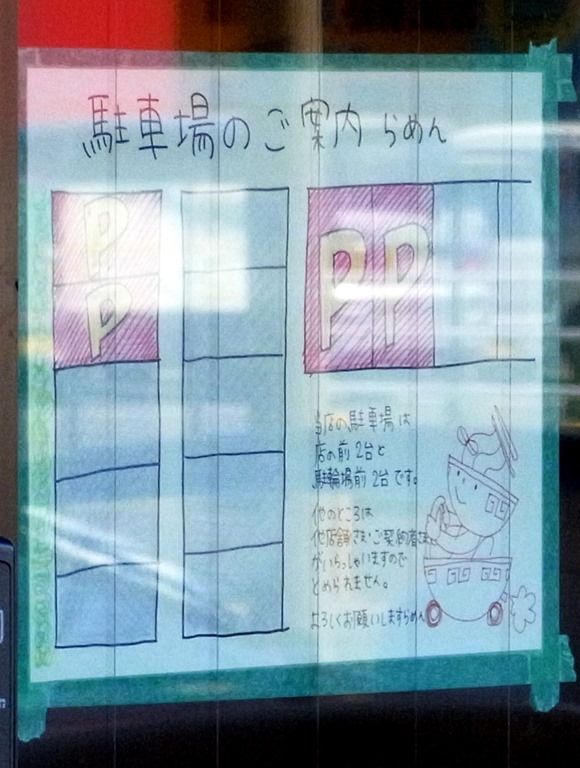 駐車場のご案内らめん
P
P
P P
当店の駐車場は
店の前2台と
駐輪場前2台です。
他のところは
他店舗さま・ご契約者さま
がいらっしゃいますので
とめられません。
よろしくお願いしますらめん